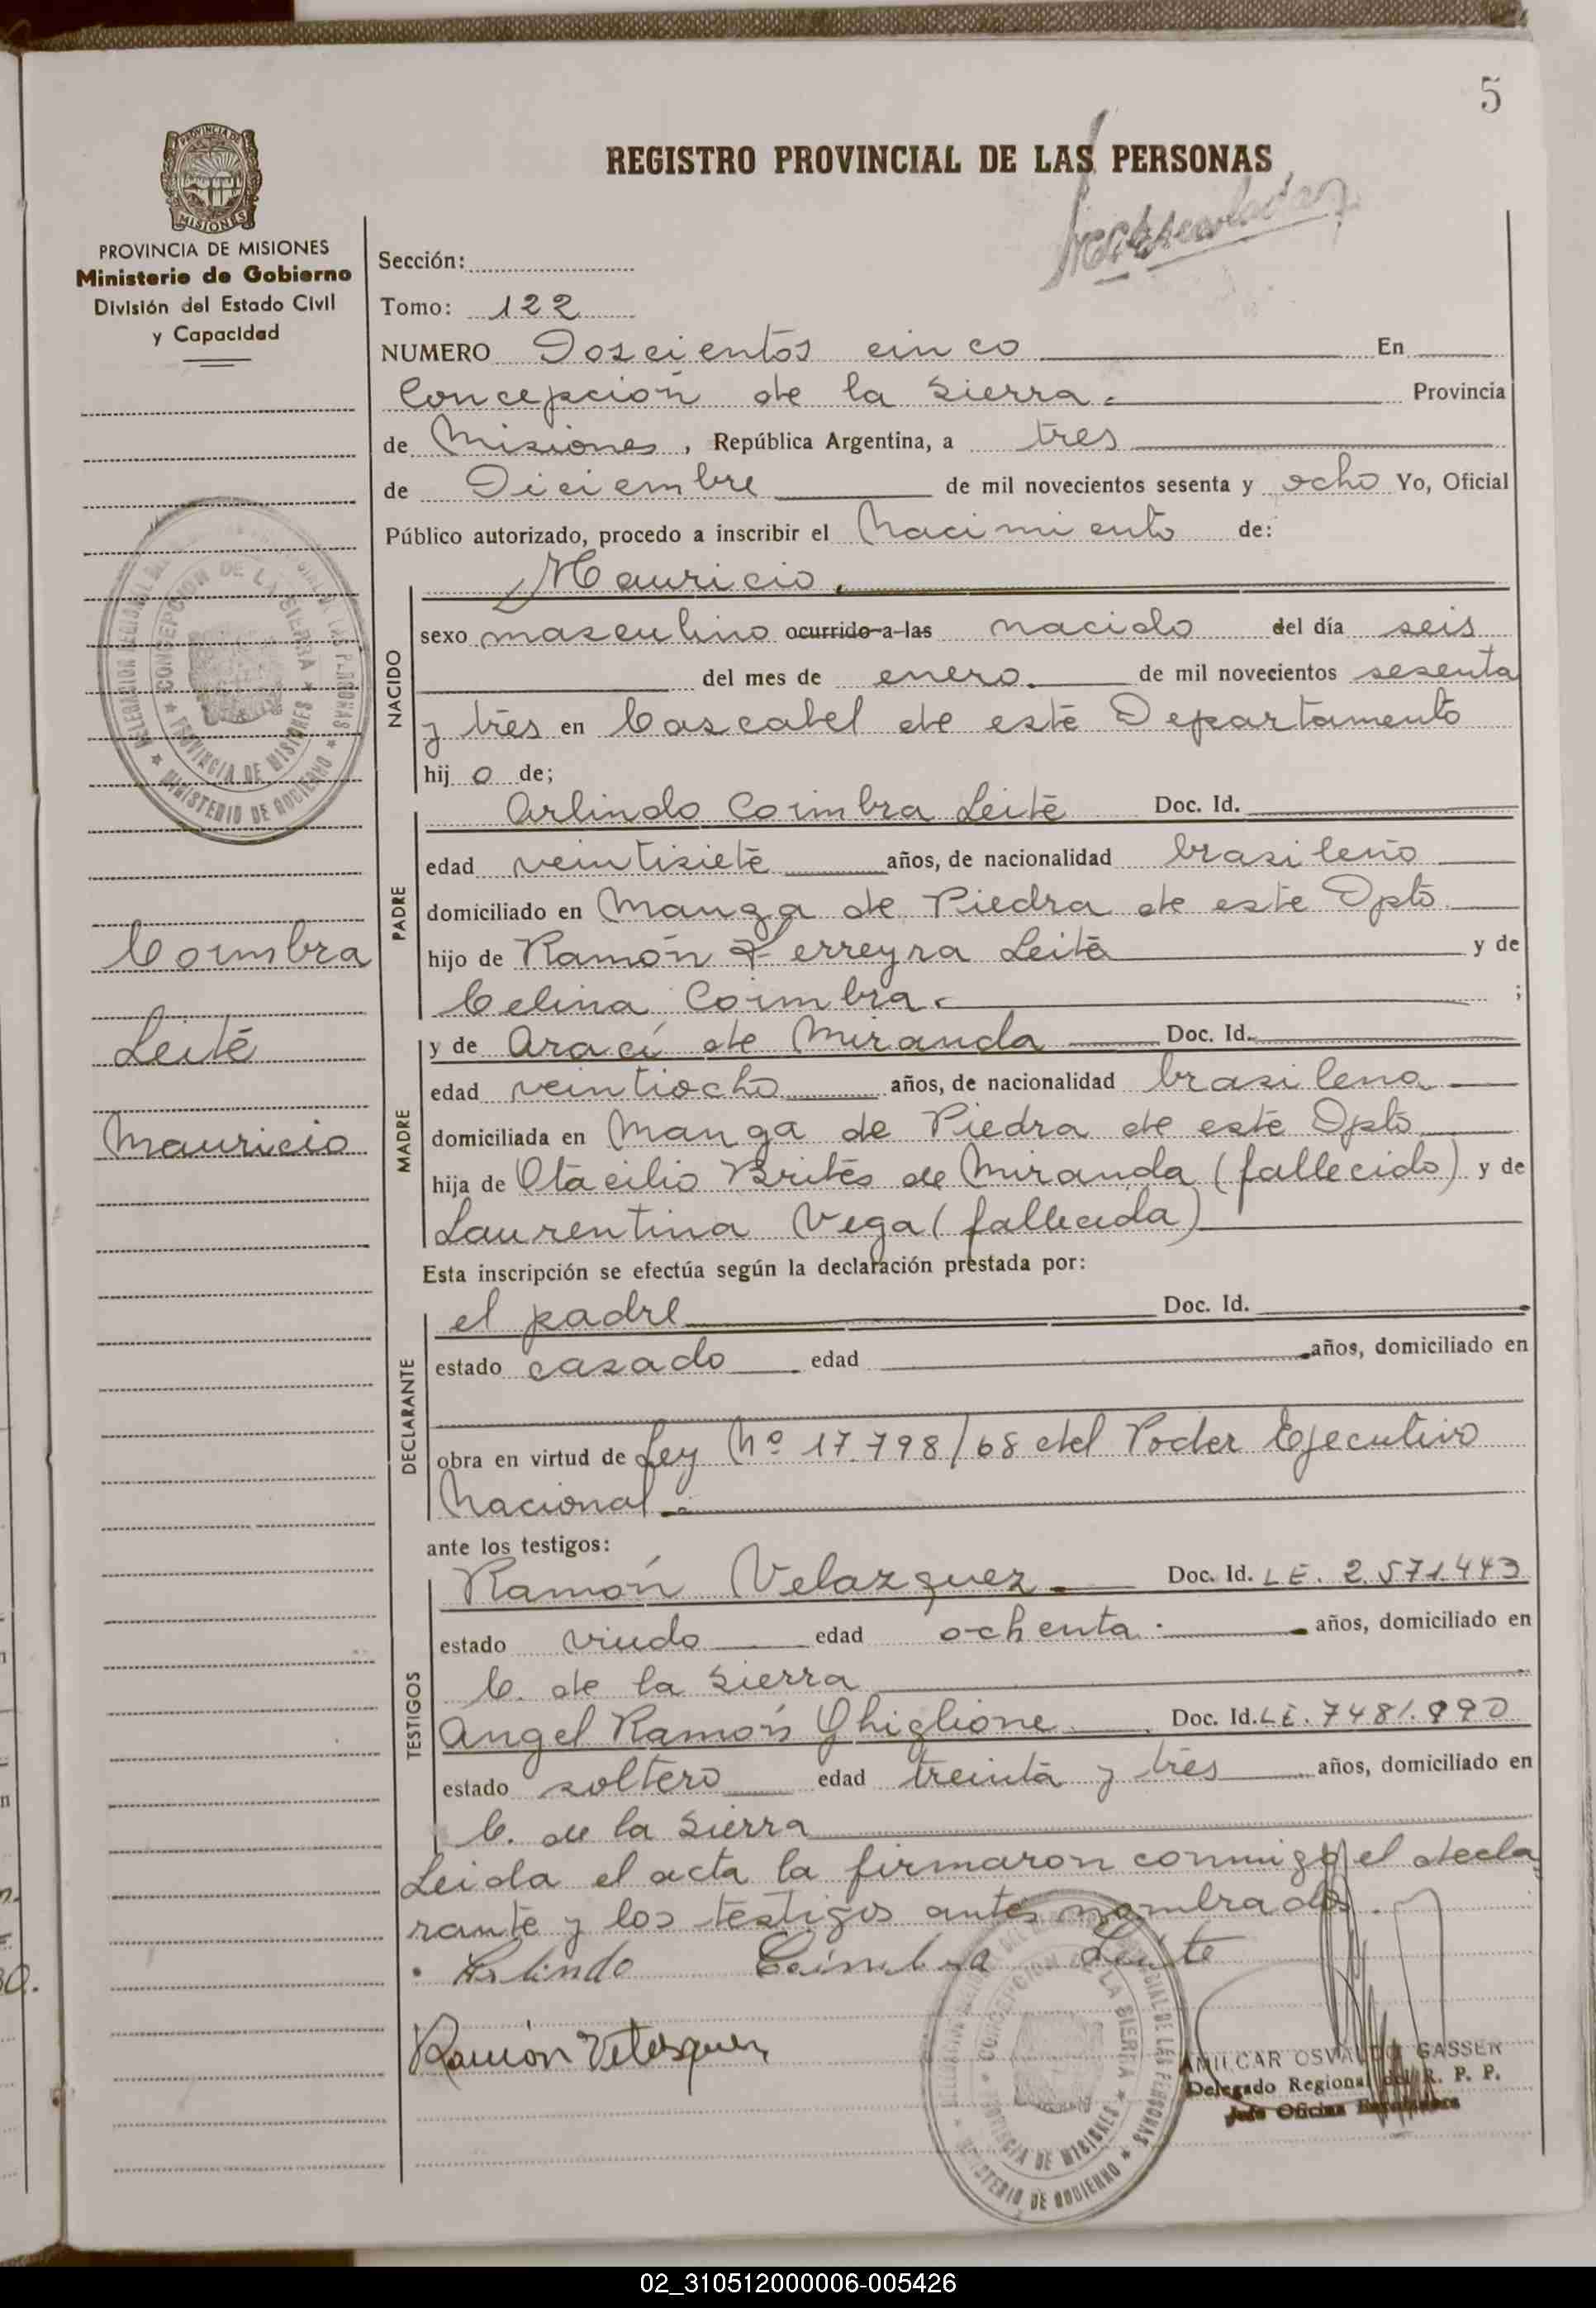 5
PROVINCIA DE MISIONES
Ministerio de Gobierno
División del Estado Civil
y Capacidad
REGISTRO PROVINCIAL DE LAS PERSONAS
Sección:
Tomo: 122
NUMERO Doscientos cinco En
Concepción de la Sierra. Provincia
de Misiones, República Argentina, a tres
de Diciembre de mil novecientos sesenta y ocho Yo, Oficial
Público autorizado, procedo a inscribir el Nacimiento de:
Mauricio.
NACIDO
sexo masculino ocurrido a las nacido del día seis
del mes de enero. de mil novecientos sesenta
y tres en Cascabel de este Departamento
hij o de;
PADRE
Arlindo Coimbra Leite Doc. Id.
edad veintisiete años, de nacionalidad brasileño
domiciliado en Manga de Piedra de este Dpto
hijo de Ramón Ferreyra Leite y de
Celina Coimbra. ;
Coimbra
Leite
Mauricio
MADRE
y de Arací de Miranda Doc. Id.
edad veintiocho años, de nacionalidad brasilena
domiciliada en Manga de Piedra de este Dpto
hija de Otacilio Brites de Miranda (fallecido) y de
Laurentina Vega (fallecida)
Esta inscripción se efectúa según la declaración prestada por:
DECLARANTE
el padre Doc. Id.
estado casado edad años, domiciliado en
obra en virtud de Ley Nº 17.798/68 del Poder Ejecutivo
Nacional.
ante los testigos:
TESTIGOS
Ramón Velazquez. Doc. Id. LE. 2.571443
estado viudo edad ochenta. años, domiciliado en
C. de la Sierra
Angel Ramón Ghiglione Doc. Id. LE. 7481.890
estado soltero edad treinta y tres años, domiciliado en
C. de la Sierra
Leida el acta la firmaron conmigo el decla
rante y los testigos antes nombrados.
Arlindo Coimbra Leite
Ramón Velasquez
AMILCAR OSVALDO GASSER
Delegado Regional del R. P. P.
CONCEPCION DE LA SIERRA
PROVINCIA DE MISIONES
MINISTERIO DE GOBIERNO
02_310512000006-005426